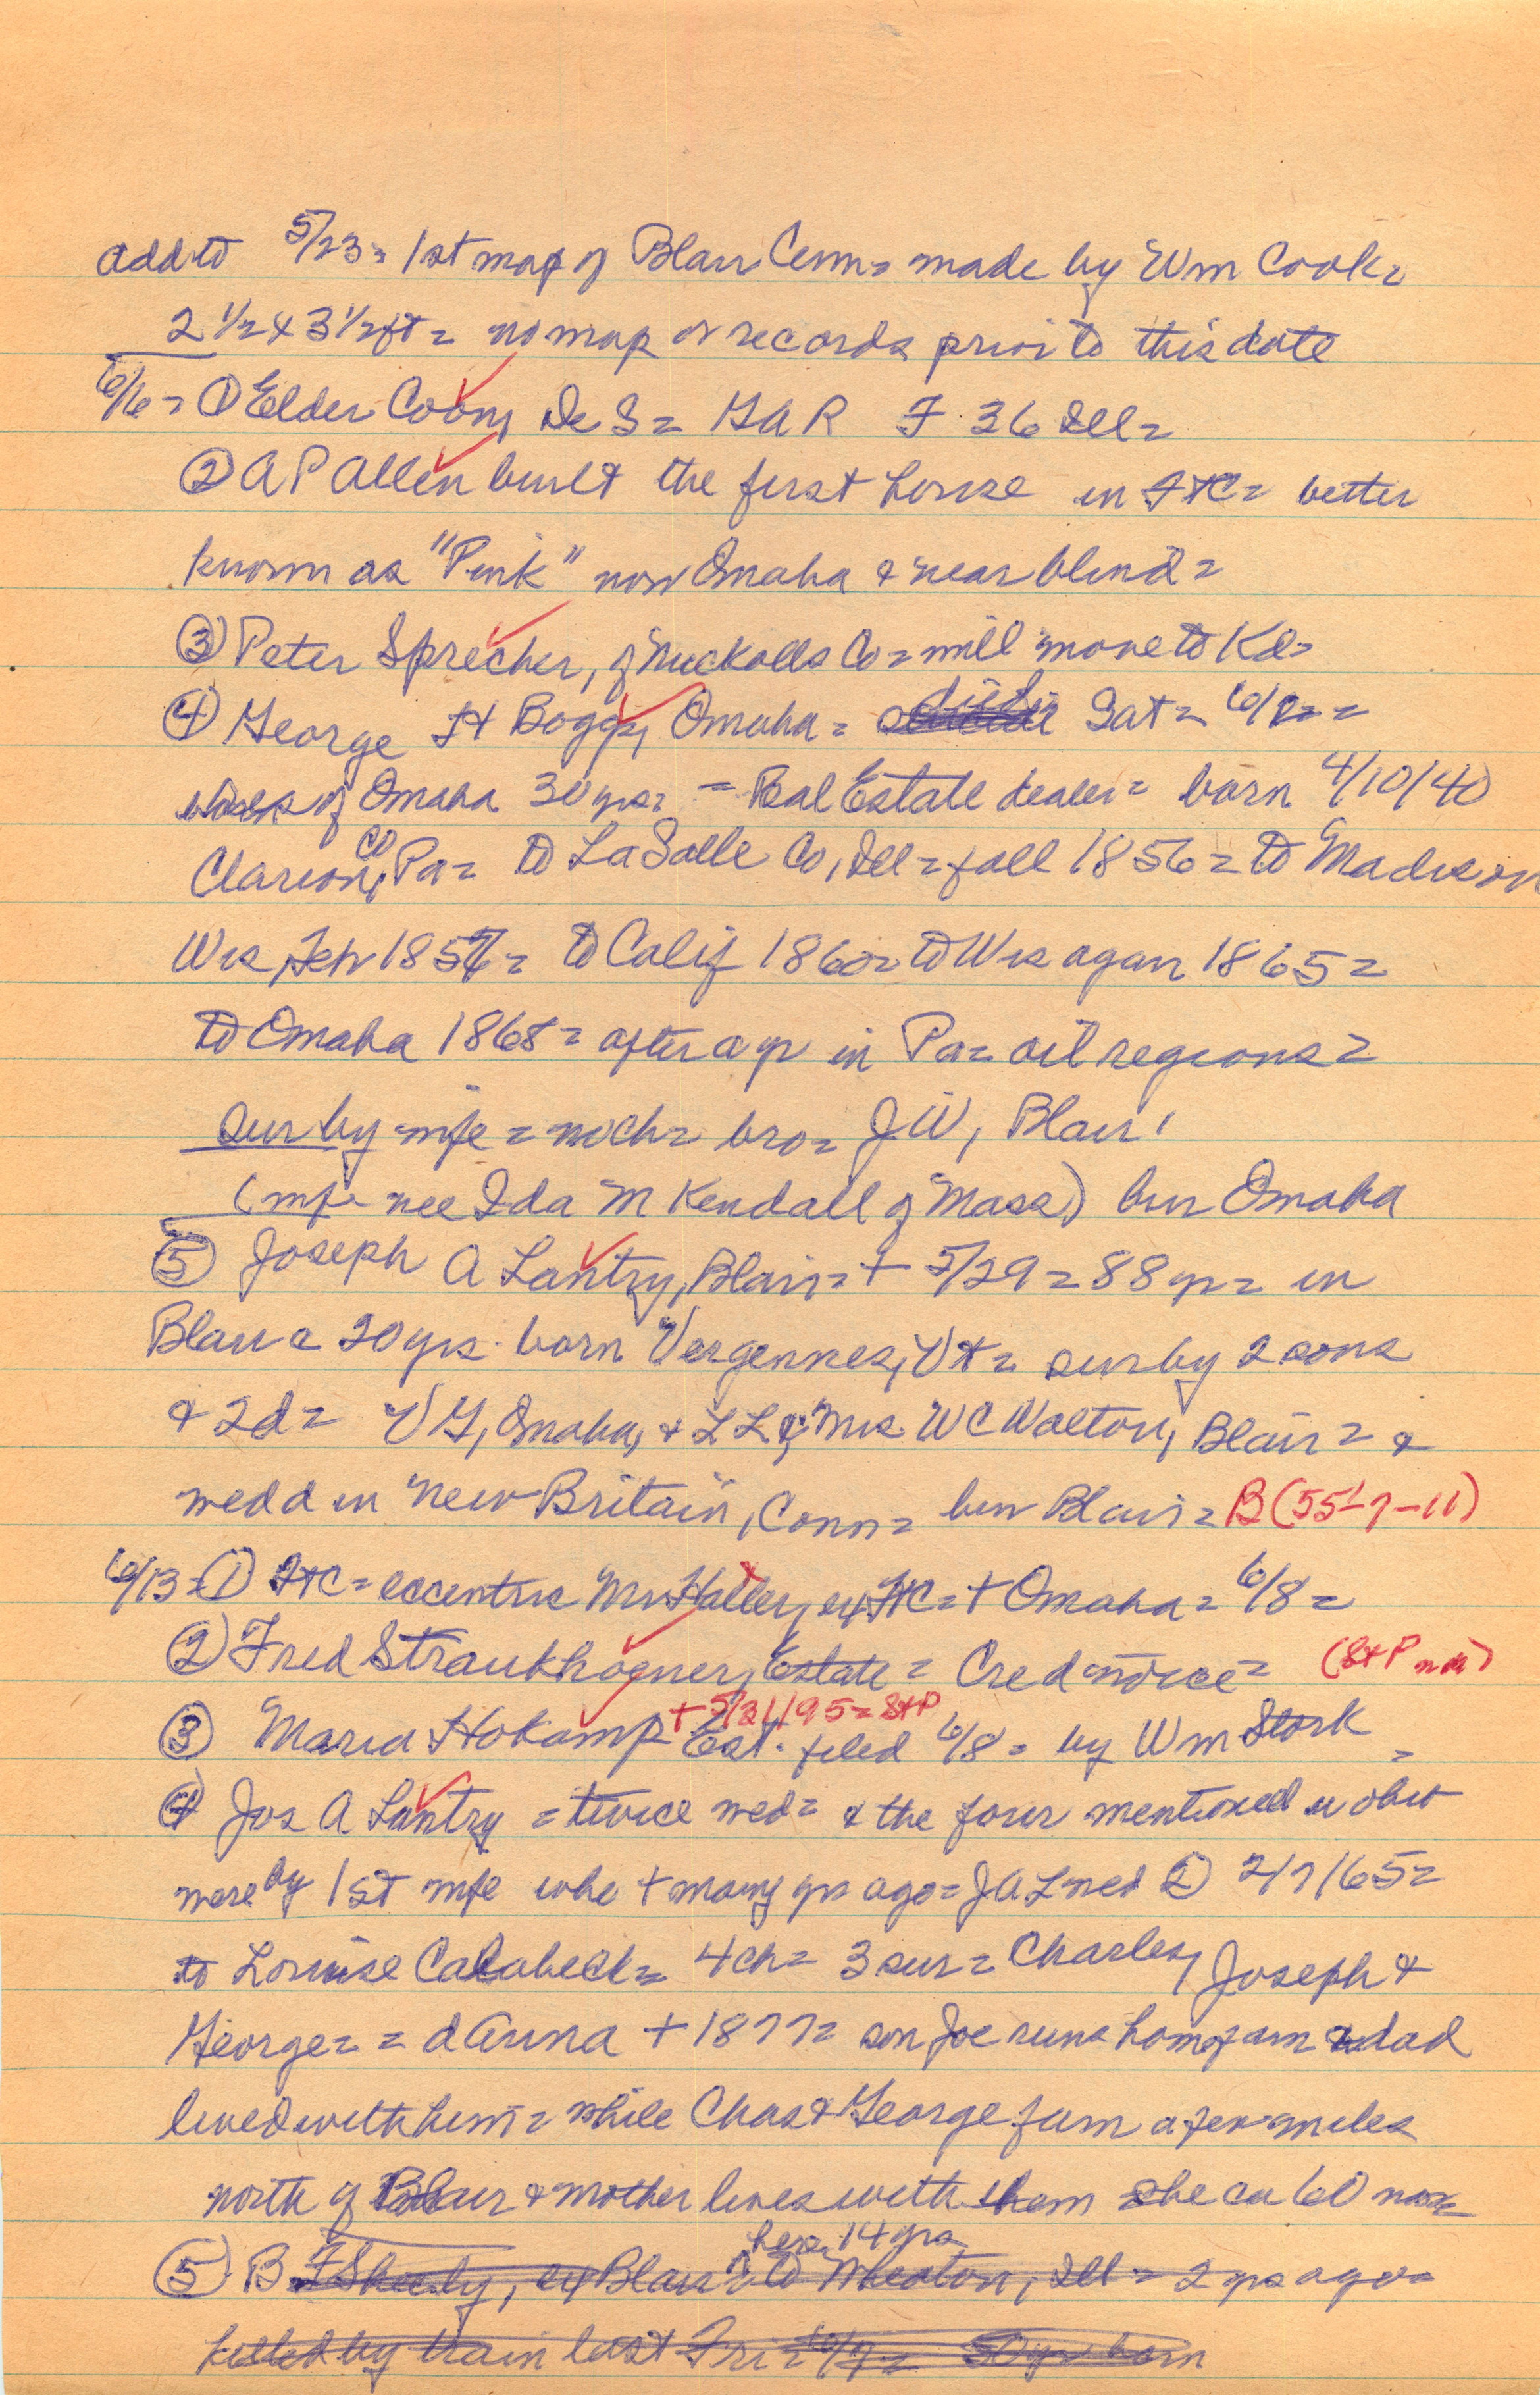 add to 5/23 = 1st map of Blair Cem = made by Wm Cook =
2 1/2 x 3 1/2 ft = no map or records prior to this date
6/6 = ① Elder Coon, De S = GAR F 36 Ill =
② A P Allen built the first house in Ft C = better
known as "Pink" now Omaha & near blind =
③ Peter Sprecher, of Nuckolls Co = will move to Kd =
④ George H Boggs, Omaha = died Sat = 6/1 = =
of Omaha 30 yrs = - Real Estate dealer = born 4/10/40
Clarion Co, Pa = to LaSalle Co, Ill = fall 1856 = to Madison
Wis, Feb 1857 = to Calif 1860 = to Wis again 1865 =
to Omaha 1868 = after a yr in Pa = oil regions =
sur by wife = no ch = bro = J W, Blair,
(wife nee Ida M Kendall of Mass) bur Omaha
⑤ Joseph A Lantry, Blair = + 5/29 = 88 yr = in
Blair c 20 yrs. born Vergennes, Vt = sur by 2 sons
& 2 d = V G, Omaha, & L L & Mrs W C Walton, Blair = &
wed d in New Britain, Conn = bur Blair = B (55-7-11)
6/13 = ① Ft C = eccentric Mr Halley, ex Ft C = + Omaha = 6/8 =
② Fred Straukhogner, Estate = Cred notice = (St P nm)
③ Maria Hokamp + 5/31/95 = St P Est. filed 6/8 = by Wm Stork =
④ Jos A Lantry = twice wed = & the four mentioned in obit
were by 1st wife who + many yrs ago = J A L wed ② 2/7/65 =
to Louise Calabeck = 4 ch = 3 sur = Charles, Joseph &
George = = d Anna + 1877 = son Joe runs home farm & dad
lived with him = while Chas & George farm a few miles
north of Blair & mother lives with them she ca 60 now =
⑤ B F Sheely, ex Blair here 14 yrs to Wheaton, Ill = 2 yrs ago =
killed by train last Fri = 6/7 = 50 yr born